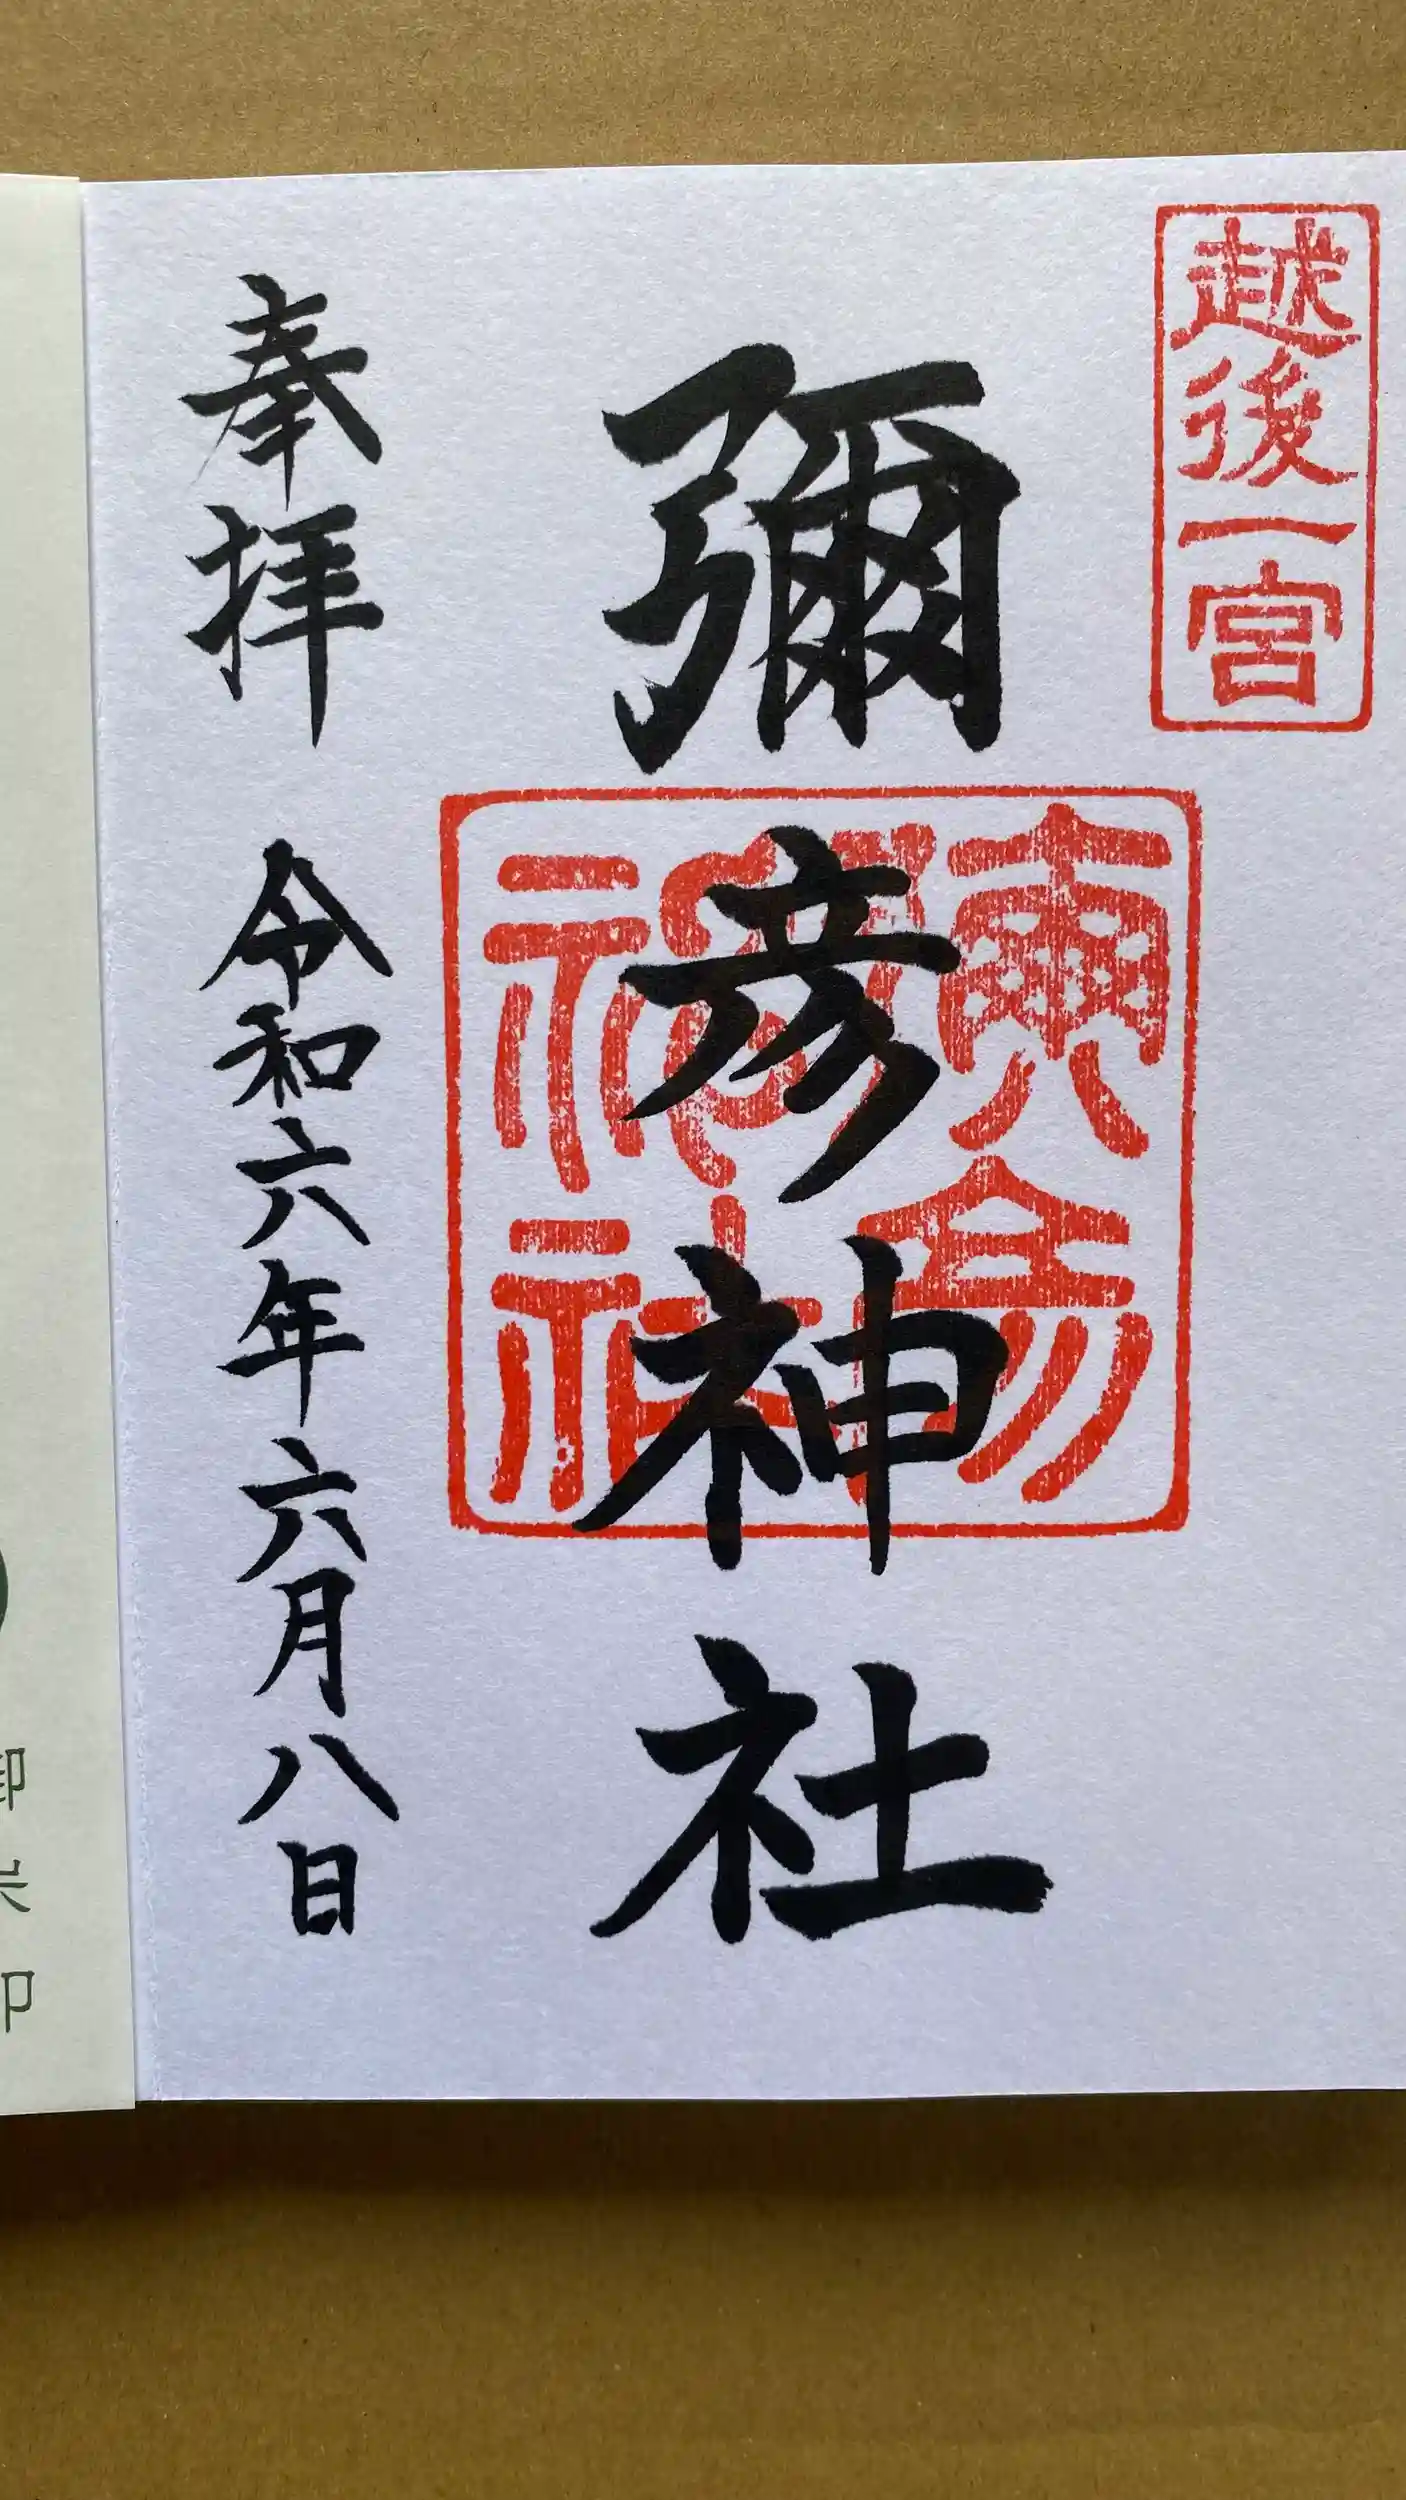 越後一宮
彌彦神社
彌彦神社
奉拝 令和六年六月八日